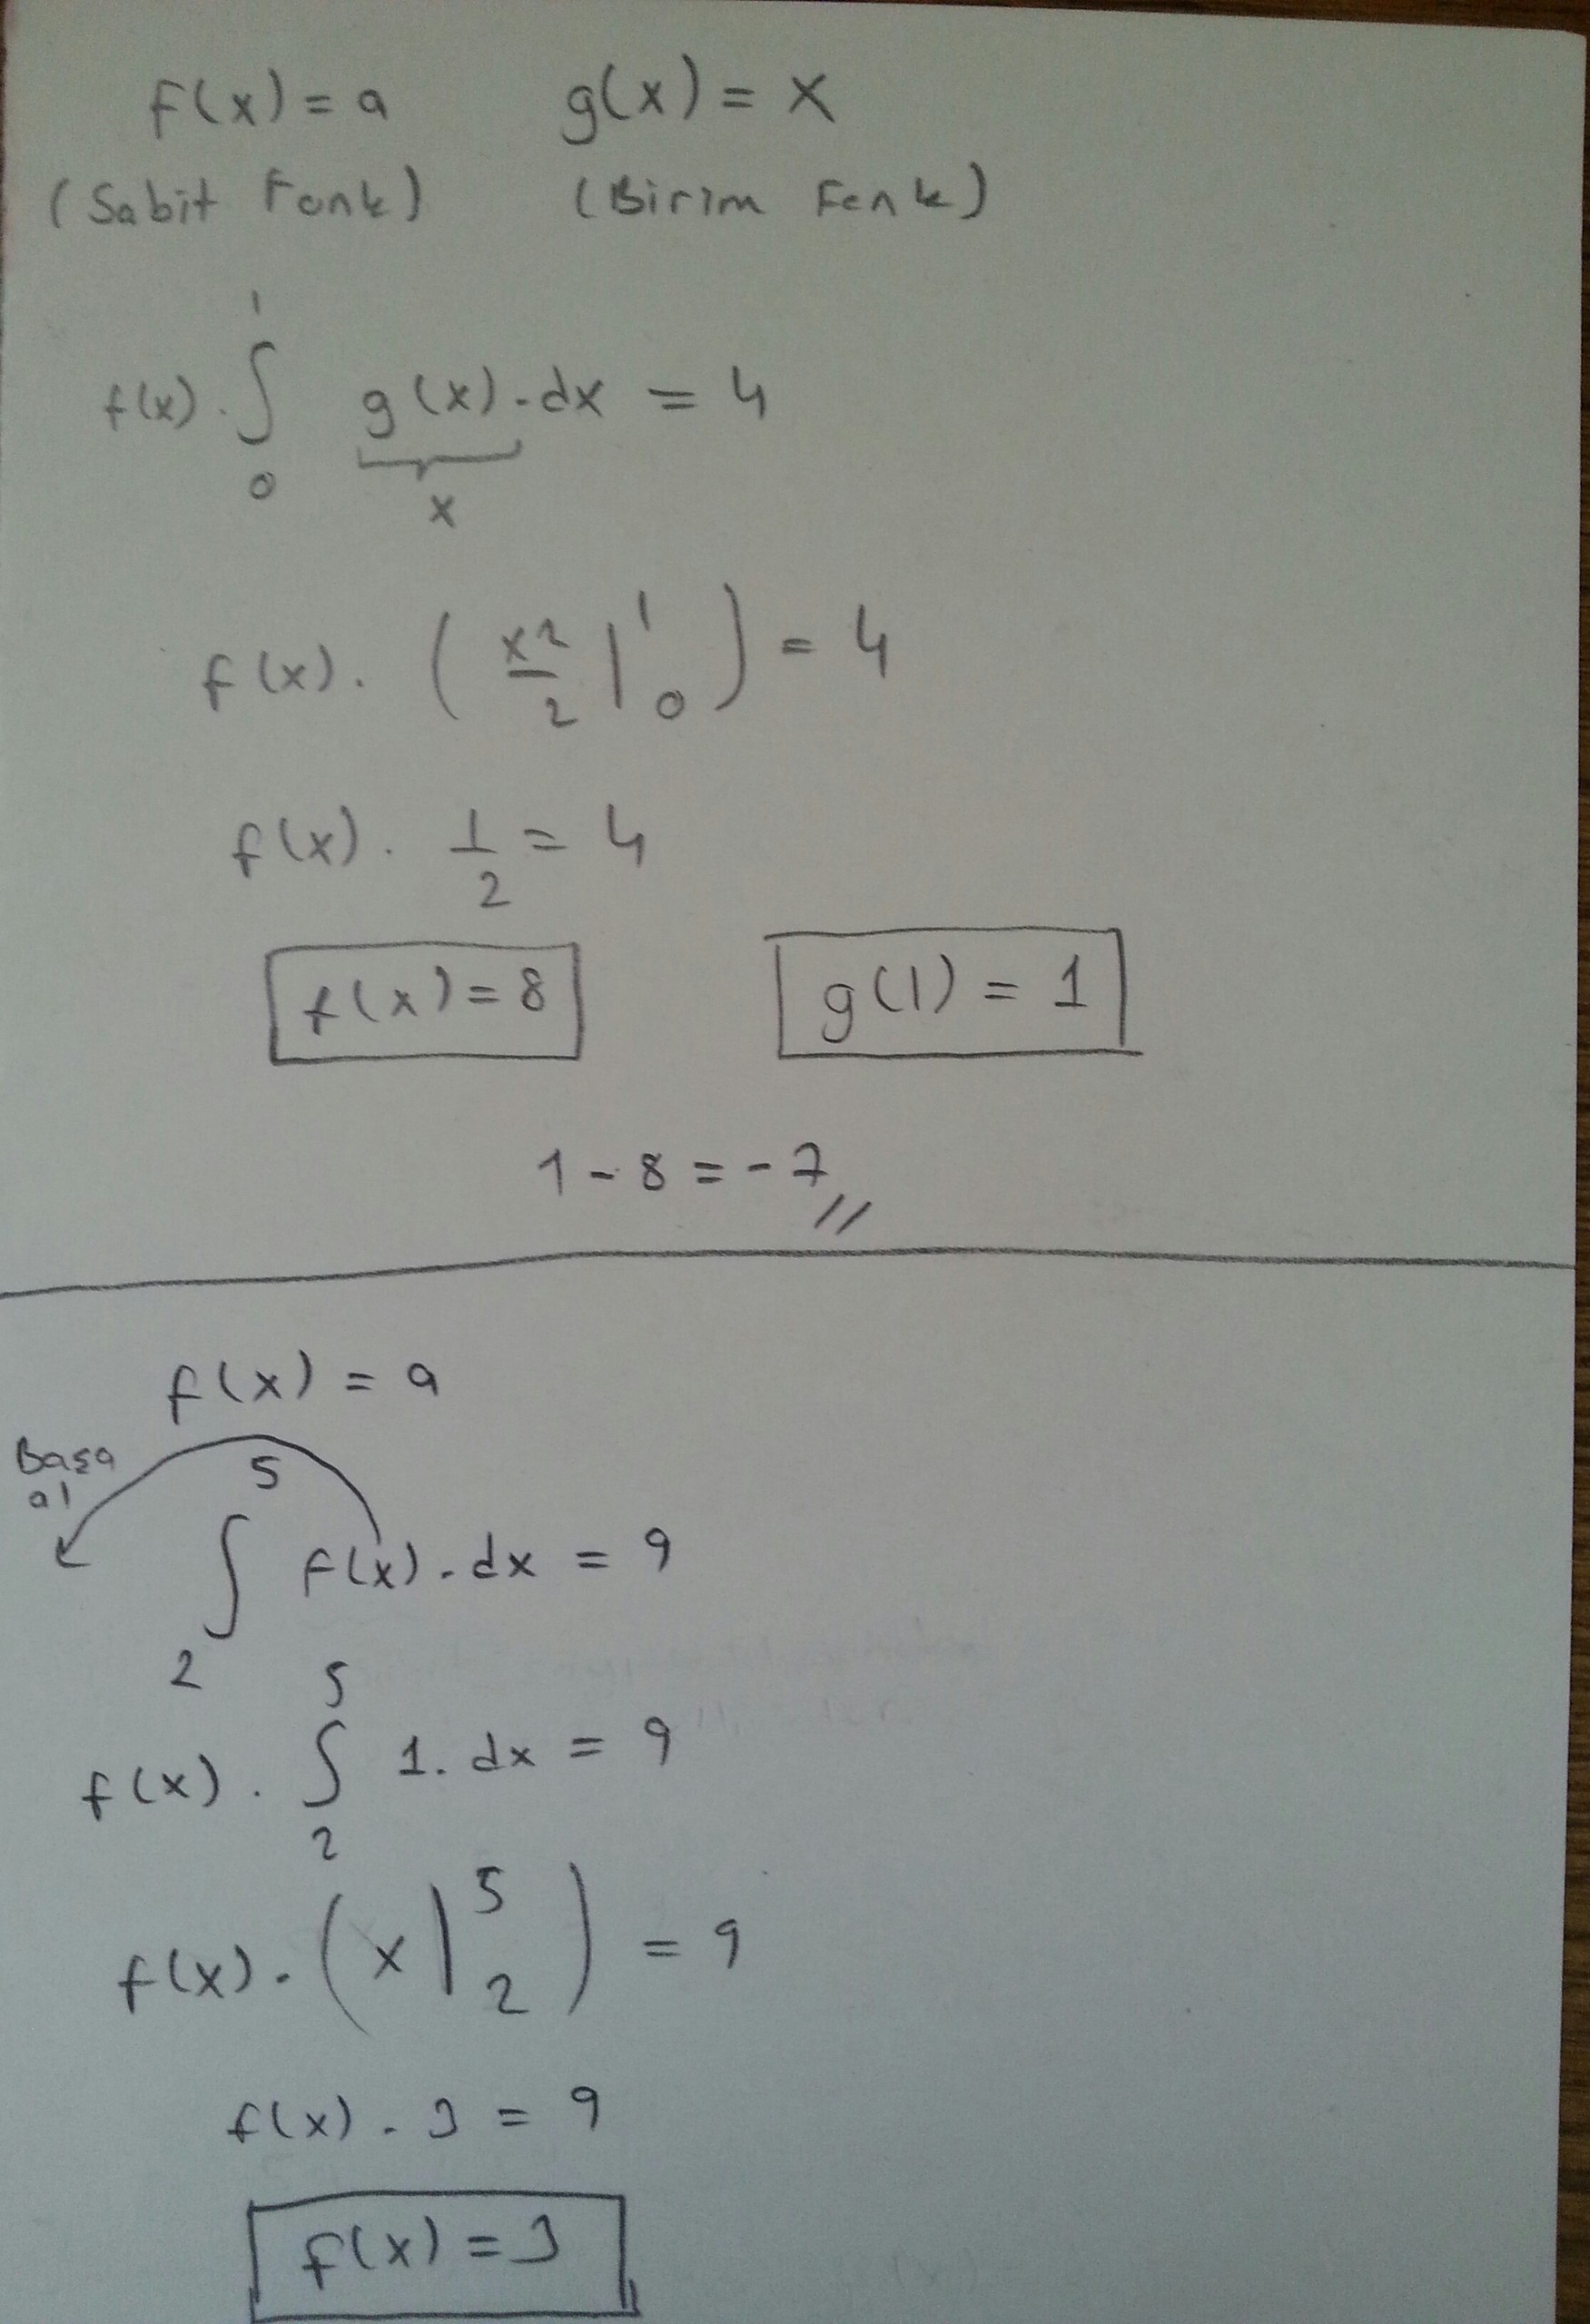 f(x) = a g(x) = x
(Sabit Fonk) (Birim Fonk)
f(x) . ∫₀¹ g(x) . dx = 4
x
f(x) . ( x²/2 |₀¹ ) = 4
f(x) . 1/2 = 4
f(x) = 8 g(1) = 1
1 - 8 = -7 //
f(x) = a
Başa
al
∫₂⁵ f(x) . dx = 9
f(x) . ∫₂⁵ 1 . dx = 9
f(x) . ( x |₂⁵ ) = 9
f(x) . 3 = 9
f(x) = 3